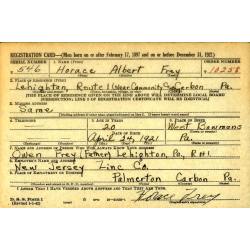 REGISTRATION CARD—(Men born on or after February 17, 1897 and on or before December 31, 1921)
SERIAL NUMBER 1. NAME (Print) ORDER NUMBER
546 Horace Albert Frey 10258
2. PLACE OF RESIDENCE (Print)
Lehighton, Route 1 Carbon Pa.
[THE PLACE OF RESIDENCE GIVEN ON THE LINE ABOVE WILL DETERMINE LOCAL BOARD
JURISDICTION; LINE 2 OF REGISTRATION CERTIFICATE WILL BE IDENTICAL]
3. MAILING ADDRESS
Same
4. TELEPHONE 5. AGE IN YEARS 6. PLACE OF BIRTH
20 West Bowmans
DATE OF BIRTH
April 24, 1921 Pa.
7. NAME AND ADDRESS OF PERSON WHO WILL ALWAYS KNOW YOUR ADDRESS
Owen Frey (Father) Lehighton, Pa., R#1
8. EMPLOYER'S NAME AND ADDRESS
New Jersey Zinc Co.
9. PLACE OF EMPLOYMENT OR BUSINESS
Palmerton Carbon Pa.
I AFFIRM THAT I HAVE VERIFIED ABOVE ANSWERS AND THAT THEY ARE TRUE.
D. S. S. FORM 1
Horace Frey